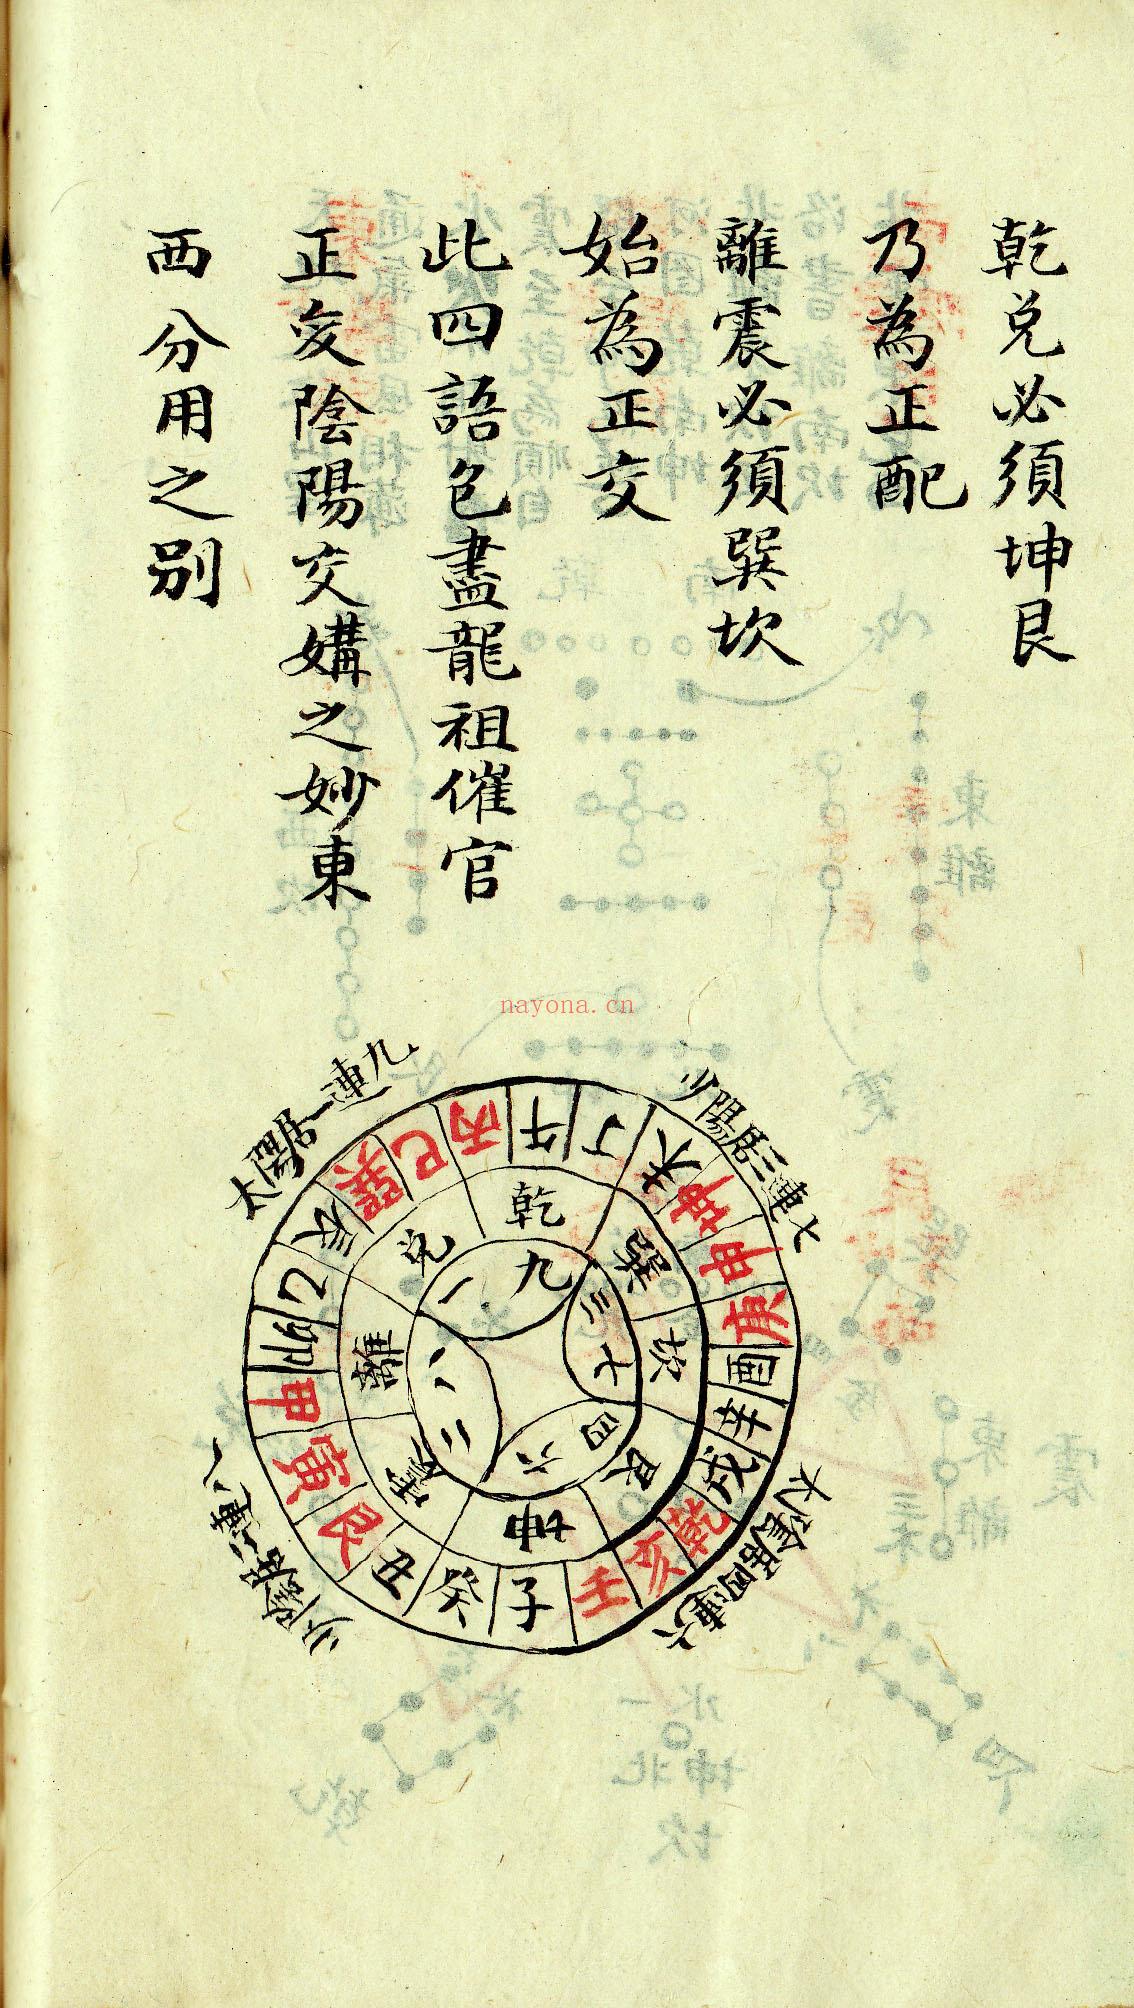 乾兑必須坤艮
乃為正配
離震必須巽坎
始為正交
此四語包盡龍祖催官
正交陰陽交媾之妙東
西分用之别
nayona.cn
太陽居一連九
少陽居三連七
少陰居二連八
太陰居四連六
丙午丁未坤申庚酉辛戌乾亥壬子癸丑艮寅甲卯乙辰巽巳
乾巽坎艮坤震離兑
九三七四六二八一